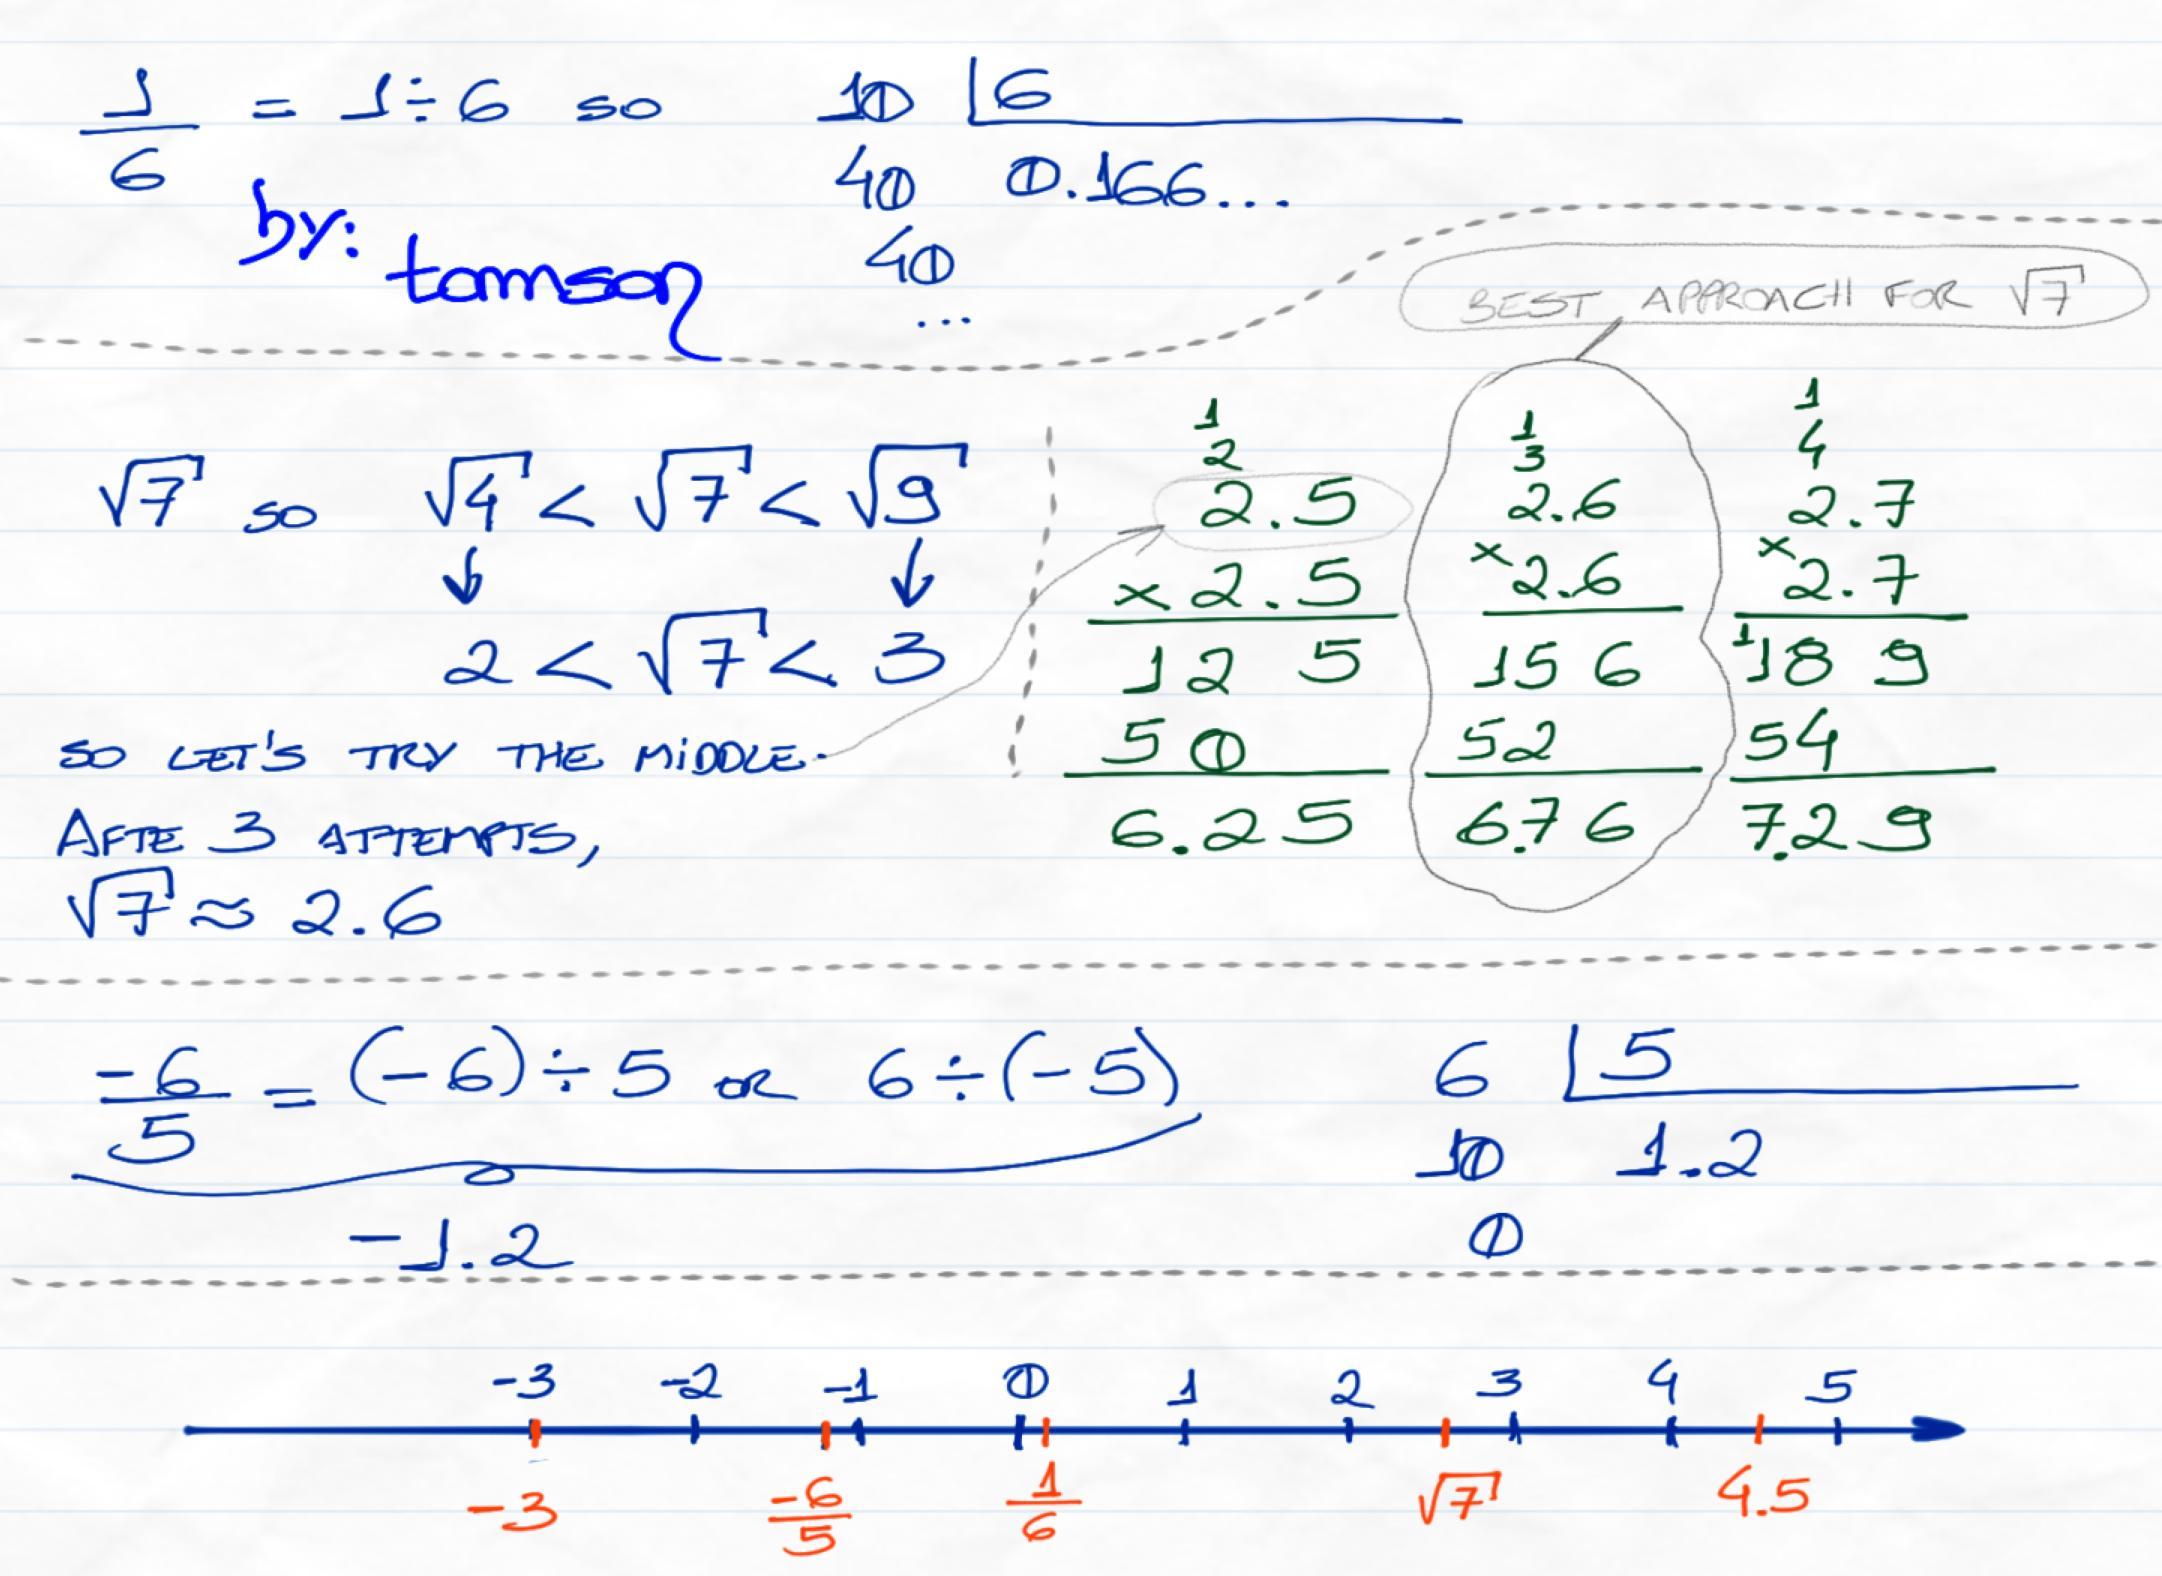 1/6 = 1 ÷ 6 so
10 | 6
40 0.166...
40
...
by: tomson
BEST APPROACH FOR √7
√7 so √4 < √7 < √9
2 < √7 < 3
SO LET'S TRY THE MIDDLE.
AFTE 3 ATTEMPTS,
√7 ≈ 2.6
1
2
2.5
× 2.5
12 5
5 0
6.25
1
3
2.6
× 2.6
15 6
52
6.76
1
4
2.7
× 2.7
1 18 9
54
7.29
-6/5 = (-6) ÷ 5 or 6 ÷ (-5)
-1.2
6 | 5
10 1.2
0
-3 -2 -1 0 1 2 3 4 5
-3 -6/5 1/6 √7 4.5